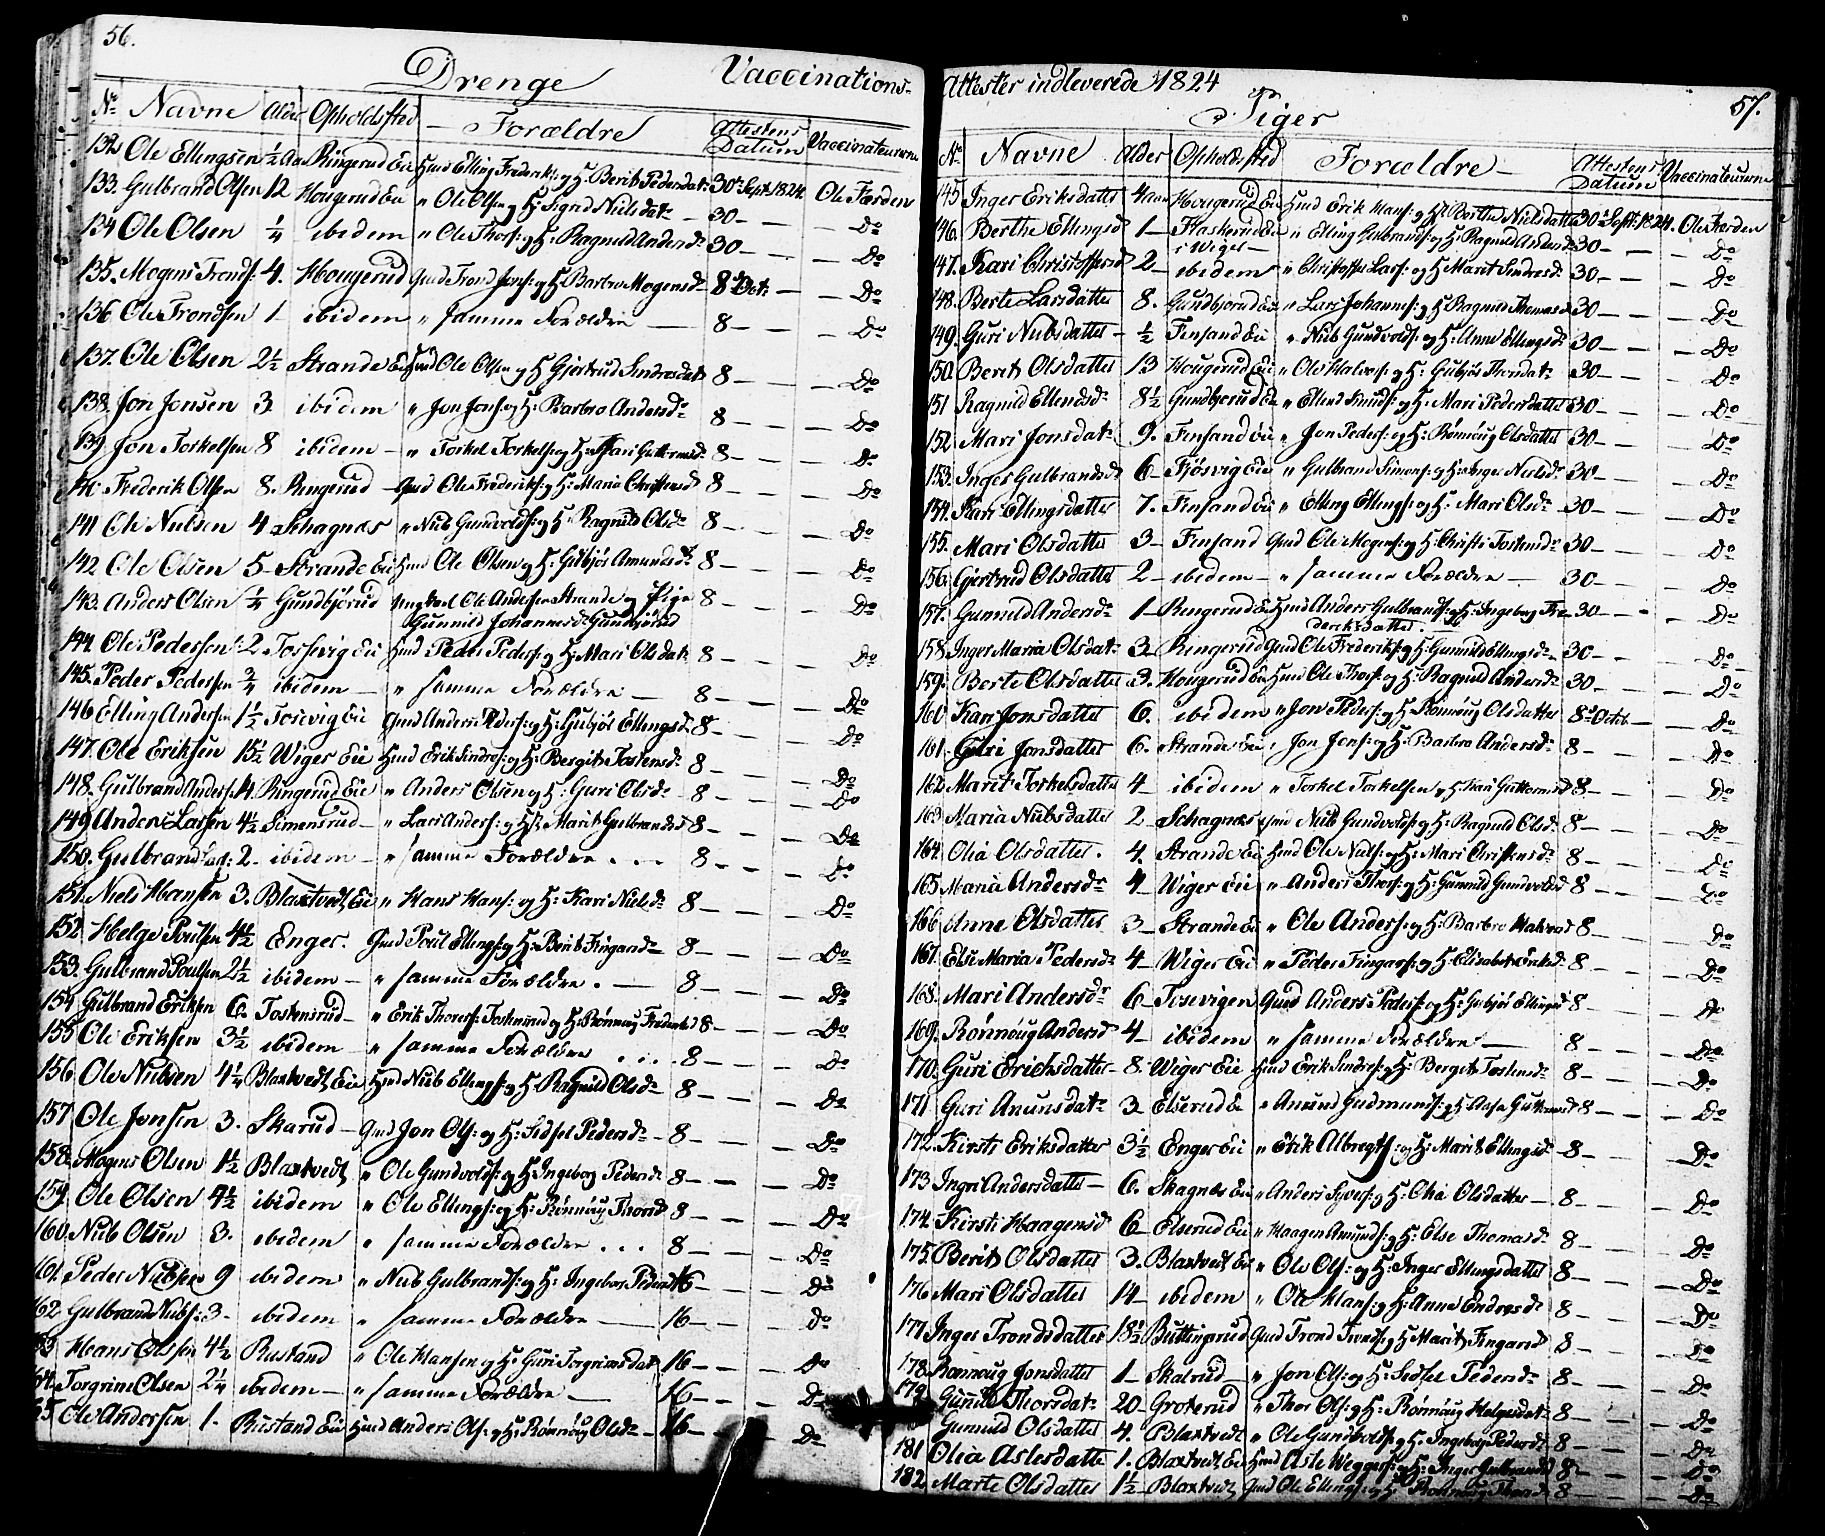 56.
Drenge Vaccinations-
No Navne Alder Opholdsted Forældre Attestens Datum Vaccinateurerne
132 Ole Ellingsen ½ Aar Ringerud Eie Huusmd Elling Frederiks: og H: Berit Pedersdatr 30 Sept. 1824 Ole Færden
133. Gulbrand Olsen 12 Hougerud Eie " Ole Olsen og H: Sigrid Nielsdatr 30 — Do
134 Ole Olsen ¼ ibidem " Ole Thors: og H: Ragnild Andersdr 30 — Do
135. Mogens Tronds: 4. Hougerud Gmd Trond Jons: og H: Barbro Mogensdr 8de Octr — Do
136 Ole Trondsen 1 ibidem " samme Forældre — 8 — Do
137. Ole Olsen 2½ Strande Eie Hmd Ole Olsen og H: Gjertrud Sindresdatr 8 — Do
138. Jon Jonsen 3 ibidem " Jon Jons: og H: Barbro Andersdr 8 — Do
139 Jon Torkelsen 8 ibidem — " Torkel Torkels: og H: Kari Guttormsdr 8 — Do
140 Frederik Olsen 8. Ringerud — Gmd Ole Frederiks: og H: Maria Christensd 8 — Do
141 Ole Nubsen 4 Schagnæs " Nub Gundvolds: og H: Ragnild Olsdr 8 — Do
142 Ole Olsen 5 — Strande Eie Hmd Ole Olsen og H: Gubjør Amundsdr 8 — Do
143. Anders Olsen ¼ Gundbjørud Ungkarl Ole Andersen Strande og Pige 8 — Do
Gunnild Johannesdr Gundbjørud
144. Ole Pedersen 2 Tosevig Eie Hmd Peder Peders: og H: Mari Olsdatr 8 — Do
145. Peder Pedersen ¾ ibidem — " samme Forældre — 8 — Do
146 Elling Andersen 1½ Tosevig Eie Gmd Anders Peders: og H: Gubjør Ellingsd: 8 — Do
147. Ole Eriksen 15½ Wiger Eie Hmd Erik Sindres: og H: Bergit Tostensdr 8 — Do
148. Gulbrand Anders: 4. Ringerud Eie " Anders Olsen og H: Guri Olsdr 8 — Do
149 Anders Larsen 4½ Simensrud — " Lars Anders: og H: Marit Gulbrandsd 8 — Do
150. Gulbrand Lars: 2 — ibidem — " samme Forældre . . . 8 — Do
151. Niels Hansen 3. Blaxtvedt Eie " Hans Hans: og H: Kari Nielsdr 8 — Do
152 Helge Poulsen 4½ Enger. Gmd Poul Ellings: og H: Berit Fingardr 8 — Do
153. Gulbrand Poulsen 2½ ibidem — " samme Forældre . — 8 — Do
154 Gulbrand Eriksen 6. Tostensrud — " Erik Thores: Tostensrud og H: Rønnoug Frederiksd 8 — Do
155 Ole Eriksen 3½ ibidem — " samme Forældre . . . 8 — Do
156. Ole Nubsen 4¼ Blaxtvedt Eie Hmd Nub Ellings: og H: Ragnild Olsdr 8 — Do
157 Ole Jonsen 3. Skarud — Gmd Jon Ols: og H: Sidsel Pedersdr 8 — Do
158. Mogens Olsen 1½ Blaxtvedt " Ole Gundvolds: og H: Ingeborg Pedersdr 8 — Do
159. Ole Olsen 4½ ibidem " Ole Ellings: og H: Rønnoug Thorsd 8 — Do
160. Nub Olsen 3. ibidem " samme Forældre . . . 8 — Do
161. Peder Nubsen 9 ibidem " Nub Gulbrands: og H: Ingeborg Pedersd 16 — Do
162 Gulbrand Nubs: 3 — ibidem " samme Forældre — 16 — Do
163 Hans Olsen 4½ Rustand " Ole Hansen og H: Guri Torgrimsdatr 16 — Do
164. Torgrim Olsen 2¼ ibidem — " samme Forældre — 16 — Do
165 Ole Andersen 1. Rustand Eie Hmd Anders Ols: og H: Rønnoug Olsdr 16 — Do
Attester indleverede 1824 57.
Piger
No Navne Alder Opholdsted Forældre — Attestens Datum Vaccinateurerne
145 Inger Eriksdatter 4 Aar Hougerud Eie Hmd Erik Hans: og H: Berthe Nielsdatter 30 Sept: 1824. Ole Færden
146. Berthe Ellingsd 1 — Flaskerud Eie " Elling Gulbrands: og H: Ragnild Andersdr 30 — Do
i Wiger —
147. Kari Christoffersd 2 — ibidem " Christoffer Lars: og H: Marit Sindresd: 30 — Do
148. Berte Larsdatter 8. Gundbjørud Eie " Lars Johannes: og H: Ragnild Thomasd 30 — Do
149. Guri Nubsdatter — ½ Finsand Eie " Nub Gundvolds: og H: Anne Ellingsdr 30 — Do
150. Berit Olsdatter 13 Hougerud Eie " Ole Halvors: og H: Gubjør Thorsdatr 30 — Do
151 Ragnild Ellendsd: 8½ Gundbjørud Eie " Ellend Knuds: og H: Mari Pedersdatter 30 — Do
152. Mari Jonsdatr 9. Finsand Eie " Jon Peders: og H: Rønnoug Olsdatter 30 — Do
153. Inger Gulbrandsd 6 — Fjøsvig Eie " Gulbrand Simons: og H: Inger Nielsdr 30 — Do
154. Kari Ellingsdatter 7. Finsand Eie " Elling Ellings: og H: Mari Olsdr 30 — Do
155. Mari Olsdatter 3 — Finsand Gmd Ole Mogens: og H: Christi Tostensdr 30 — Do
156. Gjertrud Olsdatter 2 — ibidem — " samme Forældre — 30 — Do
157. Gunnild Andersdr 1 — Ringerud Eie Hmd Anders Gulbrands: og H: Ingeborg Fre- 30 — Do
deriksdatter.
158. Inger Maria Olsdatr 3 — Ringerud Gmd Ole Frederiks: og H: Gunnild Ellingsdr 30 — Do
159. Berte Olsdatter 3. Hougerud Eie Hmd Ole Thors: og H: Ragnild Andersdr 30 — Do
160 Kari Jonsdatter 6. ibidem " Jon Peders: og H: Rønnoug Olsdatter 8de Octob — Do
161. Guri Jonsdatter 6. Strande Eie " Jon Jons: og H: Barbro Andersdr 8 — Do
162 Marit Torkelsdatter 4 — ibidem " Torkel Torkelsen og H: Kari Guttormsd 8 — Do
163 Maria Nubsdatter 2 — Schagnæs Gmd Nub Gundvolds: og H: Ragnild Olsdr 8 — Do
164. Olia Olsdatter. 4. Strande Eie Hmd Ole Nubs: og H: Mari Christensdr 8 — Do
165 Maria Andersdr 4 — Wiger Eie " Anders Thors: og H: Gunnild Gundvolsd 8 — Do
166 Anne Olsdatter 3 — Strande Eie " Ole Anders: og H: Barbro Halvorsd 8 — Do
167. Else Maria Pedersdr 4 — Wiger Eie " Peder Fingars: og H: Elisabet Eriksd 8 — Do
168. Mari Andersdr 6 — Tosevigen Gmd Anders Peders: og H: Gubjør Ellingsd 8 — Do
169. Rønnoug Andersd 4 — ibidem " samme Forældre — 8 — Do
170. Guri Erichsdatter — 8. Wiger Eie Hmd Erik Sindres: og H: Bergit Tostensdr 8 — Do
171 Guri Anunsdatr 3 — Elserud Eie " Anund Gudmunds: og H: Aase Guttormsd 8 — Do
172. Kirsti Eriksdatter 3½ Enger Eie " Erik Albregts: og H: Marit Ellingsdr 8 — Do
173 Ingri Andersdatter — 6. Skagnæs Eie " Anders Syvers: og H: Olia Olsdatter — 8 — Do
174. Kirsti Haagensd 6 — Elserud Eie " Haagen Amunds: og H: Else Thomasdr 8 — Do
175. Berit Olsdatter 3. Blaxtvedt Eie " Ole Ols: og H: Inger Ellingsdatter 8 — Do
176 Mari Olsdatter 14 — ibidem " Ole Hans: og H: Anna Endresdr 8 — Do
177. Inger Trondsdatter 18½ Buttingsrud Gmd Trond Tronds: og H: Marit Fingarsd 8 — Do
178. Rønnoug Jonsdatter 1 — Skalrud — " Jon Ols: og H: Sidsel Pedersdr 8 — Do
179. Gunild Thorsdatr 20 — Groterud " Thor Ols: og H: Rønnoug Helgesdatr 8 — Do
Gunnild Olsdatter 4. Blaxtvedt " Ole Gundvolds: og H: Ingeborg Pedersdr 8 — Do
181 Olia Aslesdatter 1. Blaxtvedt Eie Hmd Asle Weggers: og H: Inger Gulbrandsd 8 — Do
182. Marte Olsdatter 1½ Blaxtvedt Gmd Ole Ellings: og H: Rønnoug Thorsdr 8 — Do